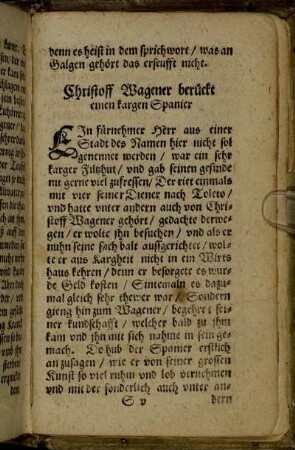 denn es heist in dem sprichwort / was an
Galgen gehört das erseufft nicht.
Christoff Wagener berückt
einen kargen Spanier
EIn fürnehmer Herr aus einer
Stadt des Namen hier nicht sol
genennet werden / war ein sehr
karger Filtzhut / vnd gab seinen gesinde
nit gerne viel zufressen / Der riet einmals
mit vier seiner Diener nach Toleto /
vnd hatte vnter andern auch von Chri-
stoff Wagener gehört / gedachte derwe-
gen / er wolte ihn besuchen / vnd als er
nuhn seine sach balt aussgerichtet / wol-
te er aus Kargheit nicht in ein Wirts
haus kehren / denn er besorgete es wur-
de Geld kosten / Sintemaln es dazu-
mal gleich sehr thewer war / Sondern
gieng hin zum Wagener / begehret sei-
ner kundschafft / welcher bald zu ihm
kam vnd ihn mit sich nahme in sein ge-
mach. Do hub der Spanier erstlich
an zusagen / wie er von seiner grossen
Kunst so viel ruhm vnd lob vernehmen
vnd mit der sonderlich auch vnter an-
S v dern